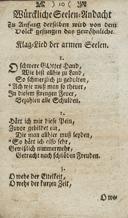 ) 10 (
Würckliche Seelen-Andacht
Zu Anfang derselben wird von dem
Volck gesungen das gewöhnliche
Klag-Lied der armen Seelen.
1.
O schwere GOttes Hand,
Wie bist allhier zu Land,
So schmertzlich zu gedulten,
Ach wie muß man so theuer,
In diesem strengen Feuer,
Bezahlen alle Schulden.
2.
Hätt ich mir diese Pein,
Zuvor gebildet ein,
Die man allhier muß leyden,
Hätt ich so offt, sehr,
Gewißlich nimmermehr,
Getracht nach schnöden Freuden.
3.
O wehe der Eitelkeit,
O wehe der kurzen Zeit,